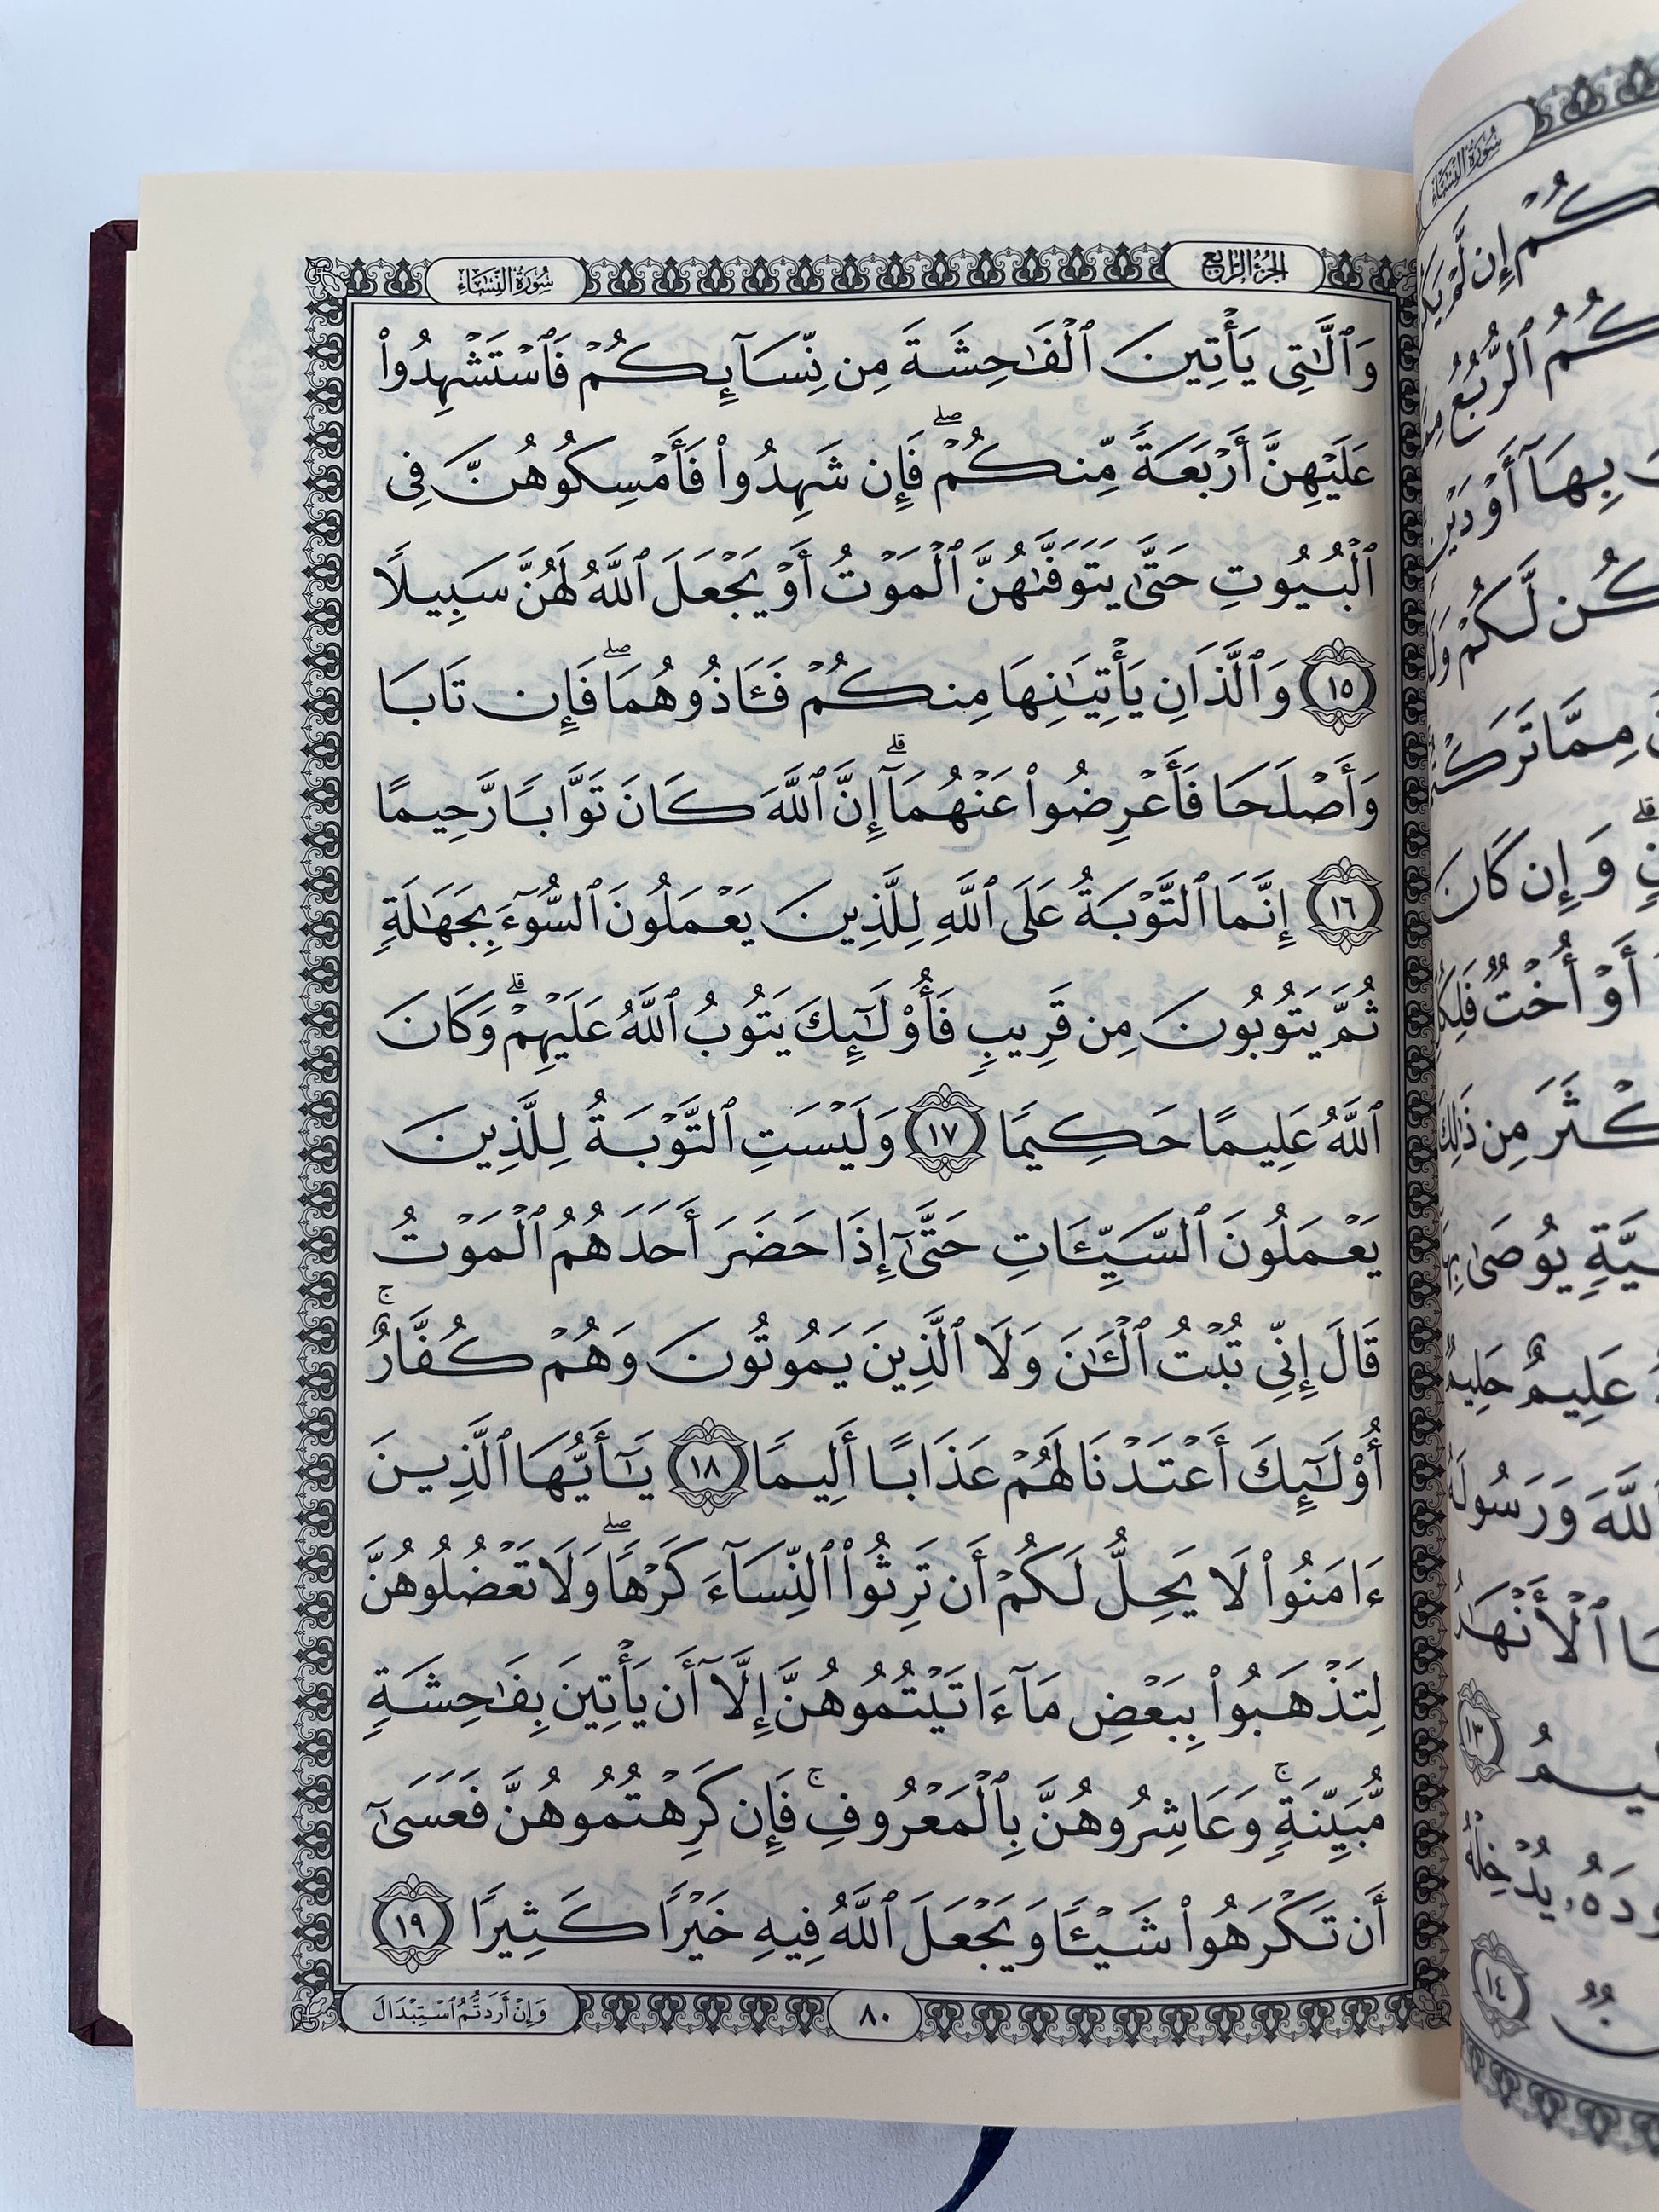 الجزء الرابع
سورة النساء
وَٱلَّٰتِى يَأْتِينَ ٱلْفَٰحِشَةَ مِن نِّسَآئِكُمْ فَٱسْتَشْهِدُوا۟
عَلَيْهِنَّ أَرْبَعَةً مِّنكُمْ ۖ فَإِن شَهِدُوا۟ فَأَمْسِكُوهُنَّ فِى
ٱلْبُيُوتِ حَتَّىٰ يَتَوَفَّىٰهُنَّ ٱلْمَوْتُ أَوْ يَجْعَلَ ٱللَّهُ لَهُنَّ سَبِيلًا
١٥ وَٱلَّذَانِ يَأْتِيَٰنِهَا مِنكُمْ فَـَٔاذُوهُمَا ۖ فَإِن تَابَا
وَأَصْلَحَا فَأَعْرِضُوا۟ عَنْهُمَآ ۗ إِنَّ ٱللَّهَ كَانَ تَوَّابًا رَّحِيمًا
١٦ إِنَّمَا ٱلتَّوْبَةُ عَلَى ٱللَّهِ لِلَّذِينَ يَعْمَلُونَ ٱلسُّوٓءَ بِجَهَٰلَةٍ
ثُمَّ يَتُوبُونَ مِن قَرِيبٍ فَأُو۟لَٰٓئِكَ يَتُوبُ ٱللَّهُ عَلَيْهِمْ ۗ وَكَانَ
ٱللَّهُ عَلِيمًا حَكِيمًا ١٧ وَلَيْسَتِ ٱلتَّوْبَةُ لِلَّذِينَ
يَعْمَلُونَ ٱلسَّيِّـَٔاتِ حَتَّىٰٓ إِذَا حَضَرَ أَحَدَهُمُ ٱلْمَوْتُ
قَالَ إِنِّى تُبْتُ ٱلْـَٰٔنَ وَلَا ٱلَّذِينَ يَمُوتُونَ وَهُمْ كُفَّارٌ ۚ
أُو۟لَٰٓئِكَ أَعْتَدْنَا لَهُمْ عَذَابًا أَلِيمًا ١٨ يَٰٓأَيُّهَا ٱلَّذِينَ
ءَامَنُوا۟ لَا يَحِلُّ لَكُمْ أَن تَرِثُوا۟ ٱلنِّسَآءَ كَرْهًا ۖ وَلَا تَعْضُلُوهُنَّ
لِتَذْهَبُوا۟ بِبَعْضِ مَآ ءَاتَيْتُمُوهُنَّ إِلَّآ أَن يَأْتِينَ بِفَٰحِشَةٍ
مُّبَيِّنَةٍ ۚ وَعَاشِرُوهُنَّ بِٱلْمَعْرُوفِ ۚ فَإِن كَرِهْتُمُوهُنَّ فَعَسَىٰٓ
أَن تَكْرَهُوا۟ شَيْـًٔا وَيَجْعَلَ ٱللَّهُ فِيهِ خَيْرًا كَثِيرًا ١٩
٨٠
وَإِنْ أَرَدتُّمُ ٱسْتِبْدَالَ
سورة النساء
كُمْ إِن لَّمْ
كُمُ ٱلرُّبُعُ
بِهَآ أَوْ دَيْنٍ
لَّكُمْ
مِمَّا
وَإِن كَانَ
أَوْ أُخْتٌ
مِن ذَٰلِكَ
يُوصَىٰ
عَلِيمٌ حَلِيمٌ
وَرَسُولَهُ
ٱلْأَنْهَٰرُ
١٣
يُدْخِلْهُ
١٤